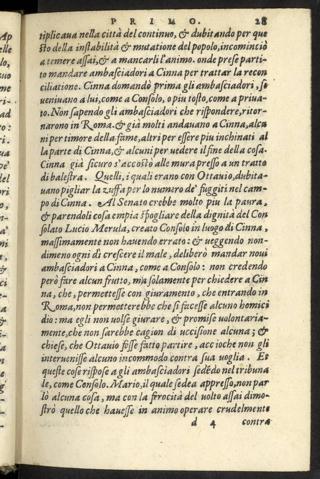 PRIMO. 28
tiplicaua nella città del continuo, & dubitando per que
sto della instabilità & mutatione del popolo, incominciò
a temere assai, & a mancarli l'animo. onde prese parti-
to mandare ambasciadori a Cinna per trattar la recon
ciliatione. Cinna domandò prima gli ambasciadori, se
veniuano a lui, come a Consolo, o piu tosto, come a priua-
to. Non sapendo gli ambasciadori che rispondere, ritor-
narono in Roma. & già molti andauano a Cinna, alcu
ni per timore della fame, altri per essere piu inchinati al
la parte di Cinna, & alcuni per uedere il fine della cosa.
Cinna già sicuro s'accostò alle mura presso a un tratto
di balestra. Quelli, i quali erano con Ottauio, dubita-
uano pigliar la zuffa per lo numero de' fuggiti nel cam-
po di Cinna. Al Senato crebbe molto piu la paura,
& parendoli cosa empia spogliare della dignità del Con
solato Lucio Merula, creato Consolo in luogo di Cinna,
massimamente non hauendo errato: & ueggendo non-
dimeno ogni di crescere il male, deliberò mandar noui
ambasciadori a Cinna, come a Consolo: non credendo
però fare alcun frutto, ma solamente per chiedere a Cin
na, che, permettesse con giuramento, che entrando in
Roma, non permetterebbe che si facesse alcuno homici
dio: ma egli non uolse giurare, & promise volontaria-
mente, che non sarebbe cagion di uccisione alcuna; &
chiese, che Ottauio fosse fatto partire, accioche non gli
interuenisse alcuno incommodo contra sua voglia. Et
queste cose rispose a gli ambasciadori sedēdo nel tribuna
le, come Consolo. Mario, il quale sedea appresso, non par
lò alcuna cosa, ma con la ferocità del volto assai dimo-
strò quello che hauesse in animo operare crudelmente
d 4 contra